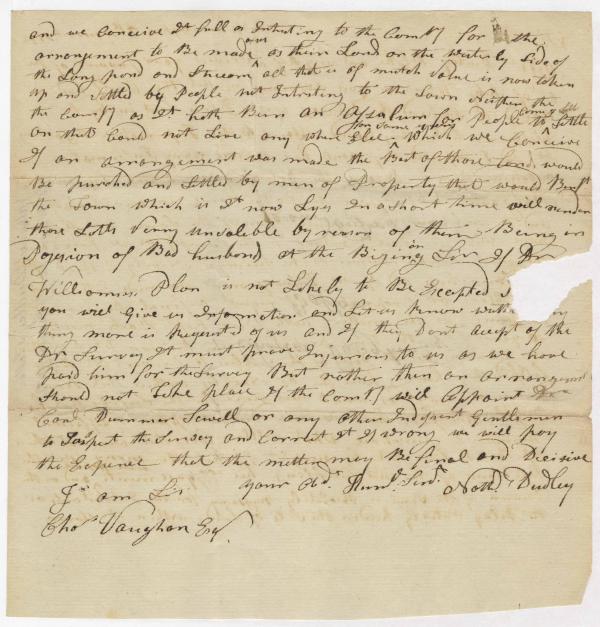 and we Conceive It full as Intrsting to the Comty for the
arrangement to Be made out as there Land on the westerly Side of
the Long pond and Stream all that is of mutch Value is now taken
up and Settled by People not Intrsting to the Town Neither the
the Comty as It hath Been an Assalum for People to Come & Sit Settle
on that Coud not Live any whare Else for Some years Which we Conceive
If an arrangement was made the Best of those Lands would
Be purchsd and Settled by men of Property that would Benft
the Town which as It now Lyes In a short time will render
those Lotts Verry unsalible by reason of their Being in
Posesion of Bad husbands at the Bigining on Sir If Dr
Williamss Plan is not Likely to Be Excepted
you will Give us Information and Let us know
thing more is Requested of us and If they Dont accept of the
Drs Survey It must prove Injurious to us as we have
paid him for the Survey But rather then an arrangement
Should not Take place If the Comty will Appoint Dr
Cand Dummer Sewell or any other Indifrent Gentlemen
to Inspect the Survey and Correct It If wrong we will pay
the Expence that the matter may Be final and Decisive
I am Sir your Obdt Humd Servt Nathl Dudley
Chas Vaughan Esqr